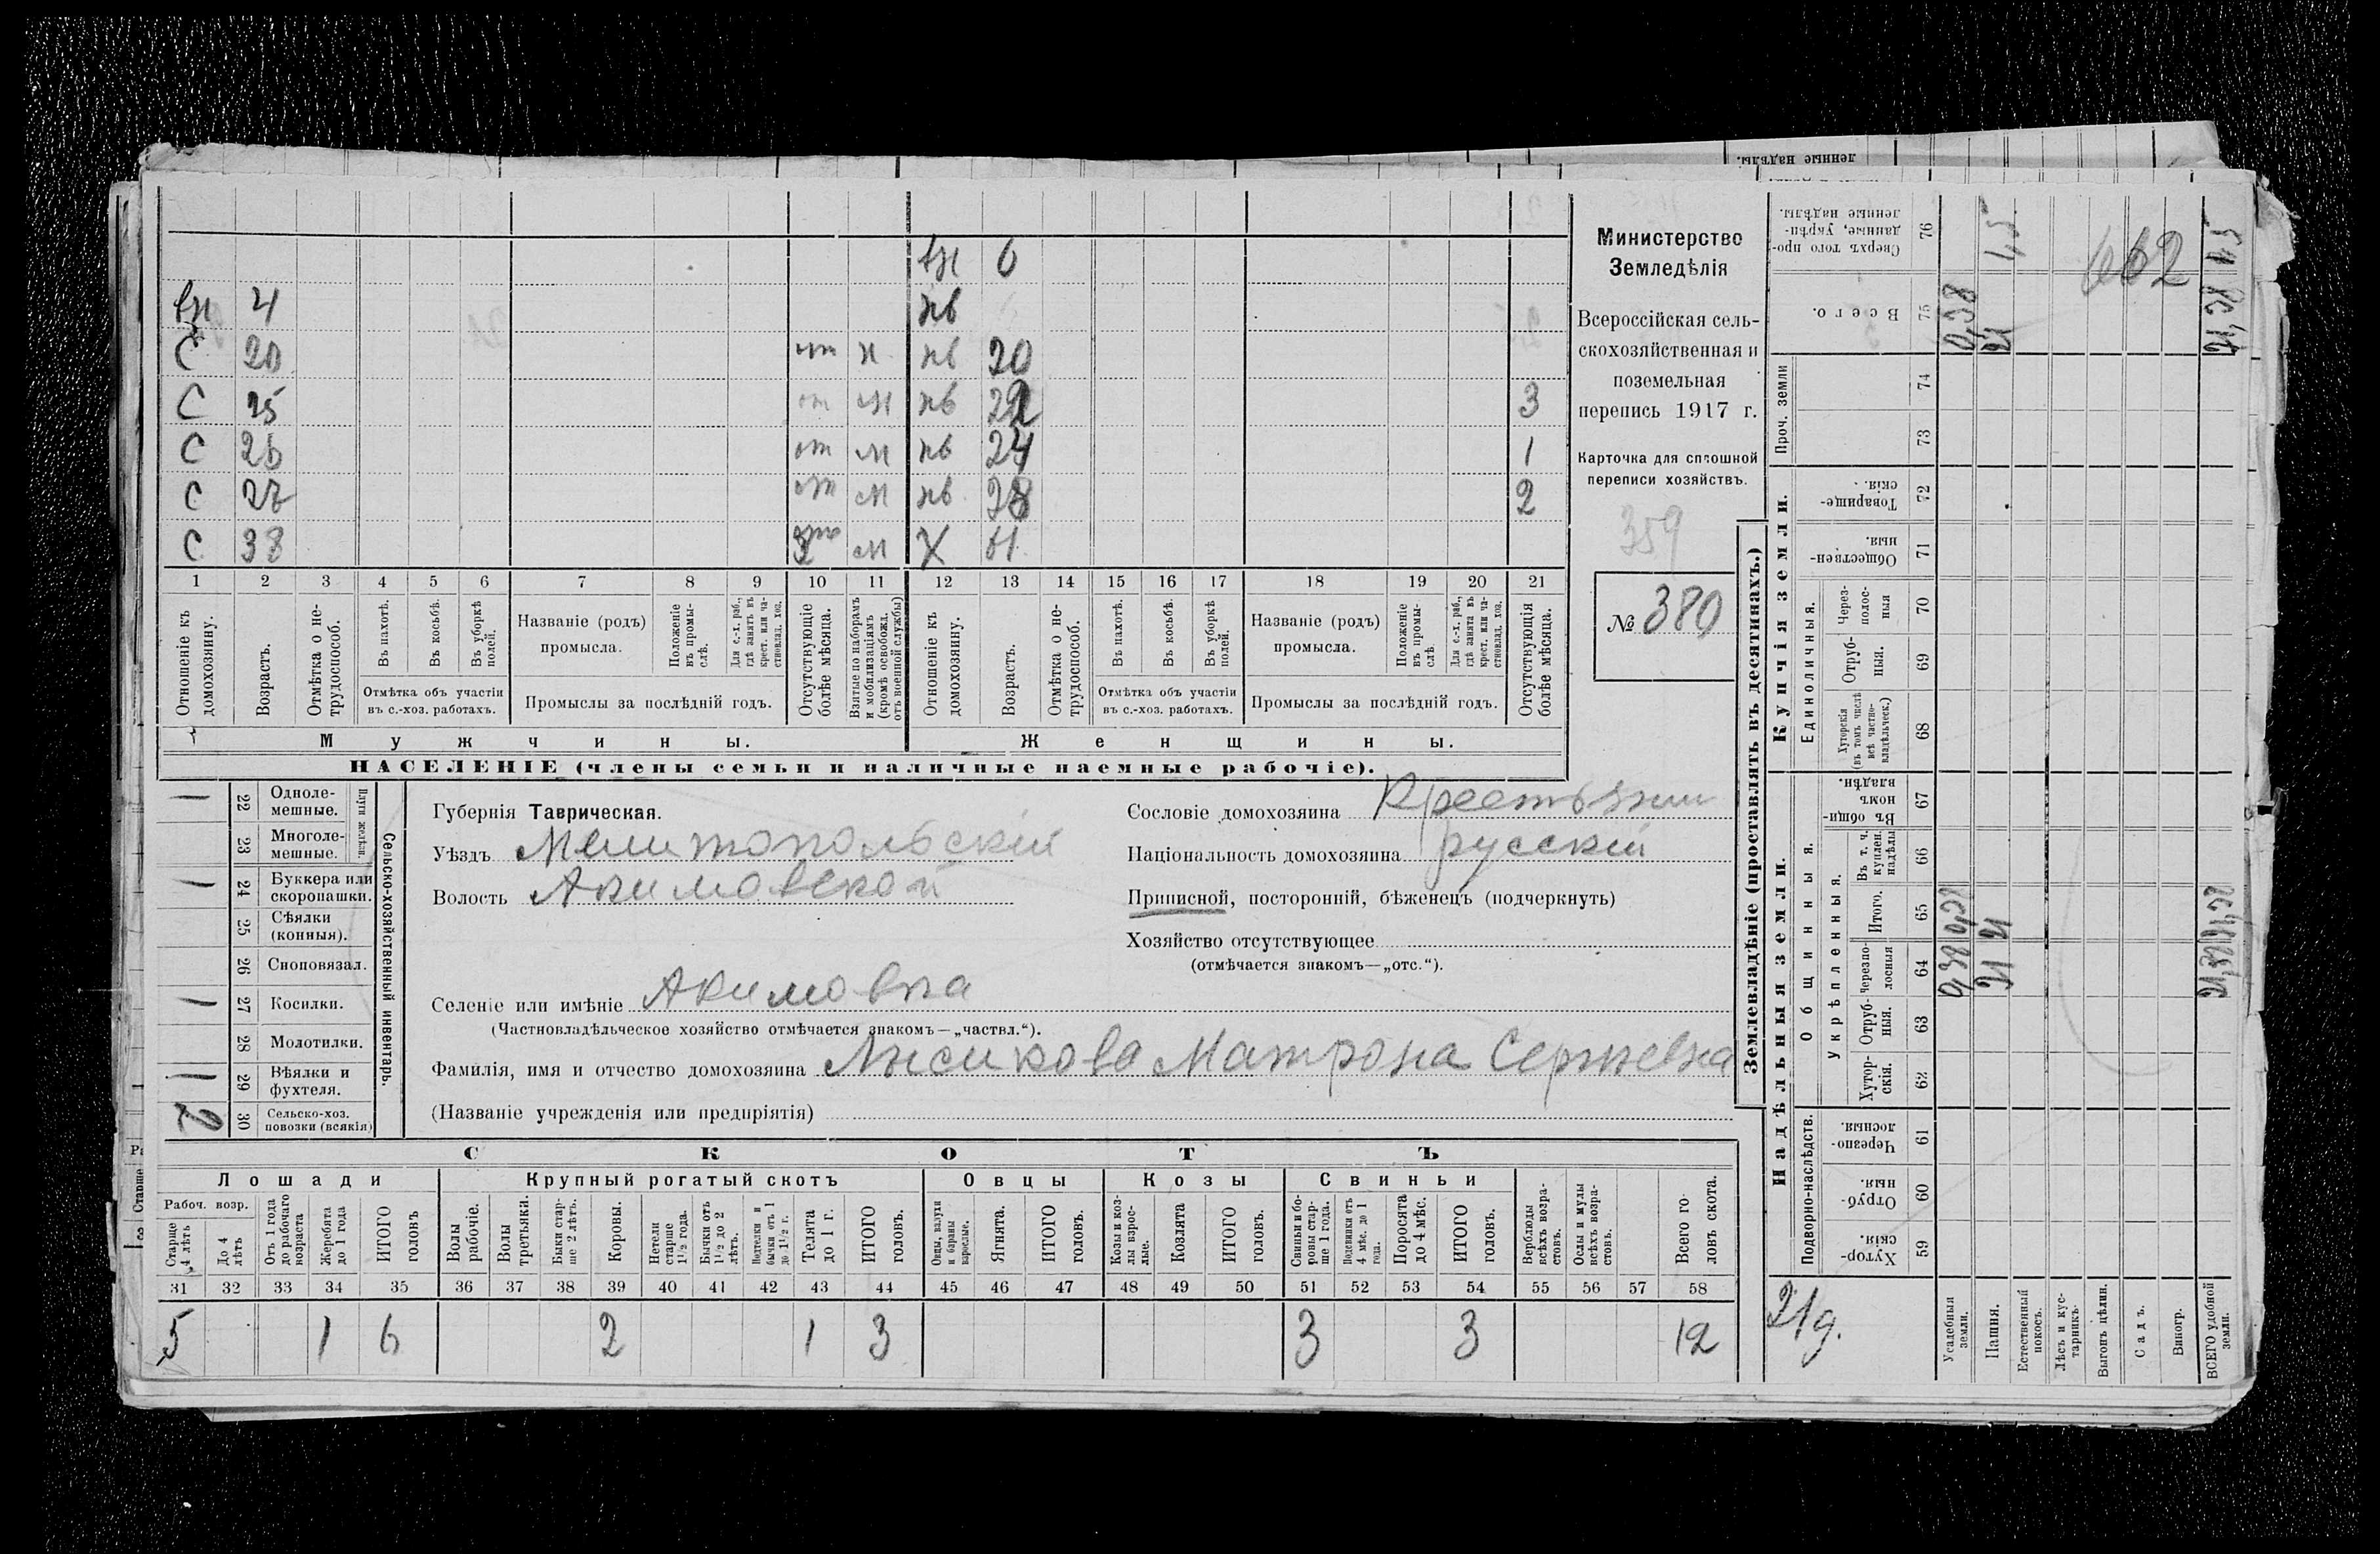 вн 6
вн 4 нв
С 20 от н нв 20
С 25 от м нв 22 3
С 26 от м нв 24 1
С 27 от м нв 28 2
С 38 м Х
1 2 3 4 5 6 7 8 9 10 11 12 13 14 15 16 17 18 19 20 21
Отношеніе къ домохозяину.
Возрастъ.
Отмѣтка о не-трудоспособ.
Въ пахотѣ.
Въ косьбѣ.
Въ уборкѣ полей.
Отмѣтка объ участіи
въ с.-хоз. работахъ.
Названіе (родъ)
промысла.
Положеніе въ промы-слѣ.
Для с.-х. раб., гдѣ занятъ въ крест. или ча-стновлад. хоз.
Промыслы за послѣдній годъ.
Отсутствующіе болѣе мѣсяца.
Взятые по наборамъ и мобилизаціямъ (кромѣ освобожд. отъ военной службы)
Отношеніе къ домохозяину.
Возрастъ.
Отмѣтка о не-трудоспособ.
Въ пахотѣ.
Въ косьбѣ.
Въ уборкѣ полей.
Отмѣтка объ участіи
въ с.-хоз. работахъ.
Названіе (родъ)
промысла.
Положеніе въ промы-слѣ.
Для с.-х. раб., гдѣ занята въ крест. или ча-стновлад. хоз.
Промыслы за послѣдній годъ.
Отсутствующія болѣе мѣсяца.
Мужчины.
Женщины.
НАСЕЛЕНІЕ (члены семьи и наличные наемные рабочіе).
Министерство
Земледѣлія
Всероссійская сель-
скохозяйственная и
поземельная
перепись 1917 г.
Карточка для сплошной
переписи хозяйствъ.
359
№ 380
Сельско-хозяйственный инвентарь.
Плуги желѣзн.
1 22 Одноле-мешные.
23 Многоле-мешные.
1 24 Буккера или скоропашки.
25 Сѣялки (конныя).
26 Сноповязал.
1 27 Косилки.
28 Молотилки.
1 29 Вѣялки и фухтеля.
2 30 Сельско-хоз. повозки (всякія)
Губернія Таврическая.
Уѣздъ Мелитопольскій
Волость Акимовской
Сословіе домохозяина Крестьянин
Національность домохозяина русскій
Приписной, посторонній, бѣженецъ (подчеркнуть)
Хозяйство отсутствующее
(отмѣчается знакомъ—„отс.“).
Селеніе или имѣніе Акимовка
(Частновладѣльческое хозяйство отмѣчается знакомъ—„частвл.“).
Фамилія, имя и отчество домохозяина Лысикова Матрона Сергѣевна
(Названіе учрежденія или предпріятія)
СКОТЪ
Лошади
Крупный рогатый скотъ
Овцы
Козы
Свиньи
Рабоч. возр.
Старше 4 лѣтъ
До 4 лѣтъ
Отъ 1 года до рабочаго возраста
Жеребята до 1 года
ИТОГО головъ
Волы рабочіе.
Волы третьяки.
Быки стар-ше 2 лѣтъ.
Коровы.
Нетели старше 1½ года.
Бычки отъ 1½ до 2 лѣтъ.
Подтелки и бычки отъ 1 до 1½ г.
Телята до 1 г.
ИТОГО головъ.
Овцы, валухи и бараны взрослые.
Ягнята.
ИТОГО головъ.
Козы и коз-лы взрос-лые.
Козлята
ИТОГО головъ.
Свиньи и бо-ровы стар-ше 1 года.
Подсвинки отъ 4 мѣс. до 1 года.
Поросята до 4 мѣс.
ИТОГО головъ.
Верблюды всѣхъ возра-стовъ.
Ослы и мулы всѣхъ возра-стовъ.
Всего го-ловъ скота.
31 32 33 34 35 36 37 38 39 40 41 42 43 44 45 46 47 48 49 50 51 52 53 54 55 56 57 58
5 1 6 2 1 3 3 3 12
Землевладѣніе (проставлять въ десятинахъ.)
Надѣльныя земли.
Купчія земли.
Подворно-наслѣдств.
Общинныя.
Укрѣпленныя.
Единоличныя.
Проч. земли
59 Хутор-скія.
60 Отруб-ныя.
61 Черезпо-лосныя.
62 Хутор-скія.
63 Отруб-ныя.
64 Черезпо-лосныя
65 Итого.
66 Въ т. ч. куплен. надѣлы
67 Въ общи-номъ владѣн.
68 Хуторскія (въ томъ числѣ всѣ частно-владѣльческ.)
69 Отруб-ныя.
70 Через-полос-ныя
71 Обществен-ныя.
72 Товарище-скія.
73
74
75 Всего.
76 Сверхъ того про-данные, укрѣп-ленные надѣлы.
21 д.
Усадебныя земли. 0,38 0,38 0,38
Пашня. 21 21 21 4,5
Естественный покосъ.
Лѣсъ и кус-тарникъ.
Выгонъ цѣлин.
Садъ.
Виногр.
ВСЕГО удобной земли. 21,38 21,38 21,38
662
ленные надѣлы.